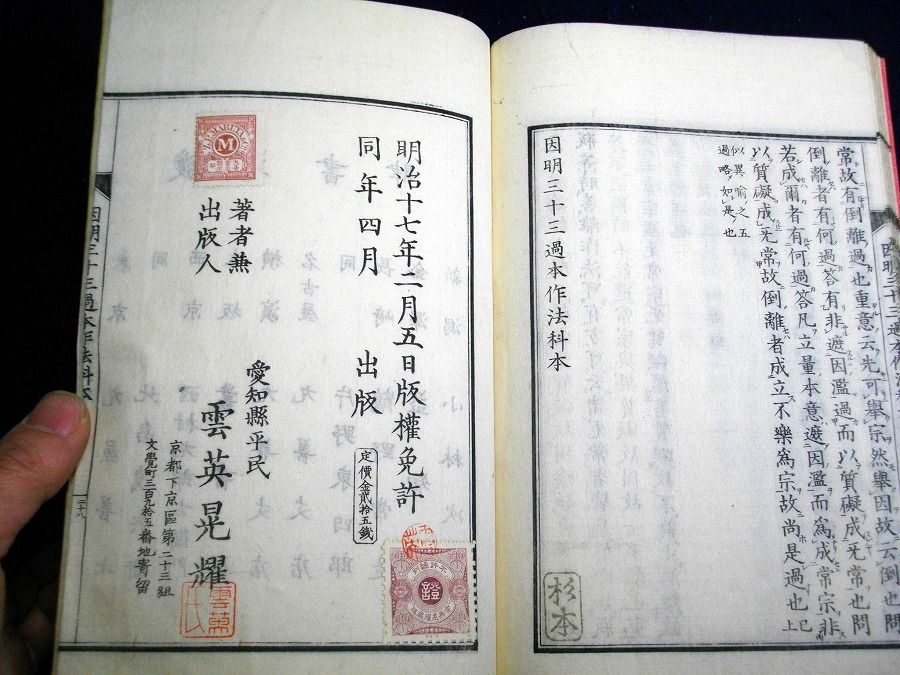 常故有倒離過也重意云先可擧宗然擧因故云倒也問
倒離者有何過答有非遮因濫過而以質礙成无常也問
若成爾者有何過答凡立量本意遮因濫而爲成常宗非
以質礙成无常故倒離者成立不樂爲宗故尚是過也已上
似異喩之五
過略如是也
因明三十三過本作法科本
杉本
明治十七年二月五日版權免許
同年四月 出版
定價金貳拾五錢
著者兼
出版人
愛知縣平民
雲英晃耀
京都下京區第二十三組
文覺町三百九拾五番地寄留
因明三十三過本作法科本
三十八
M
證